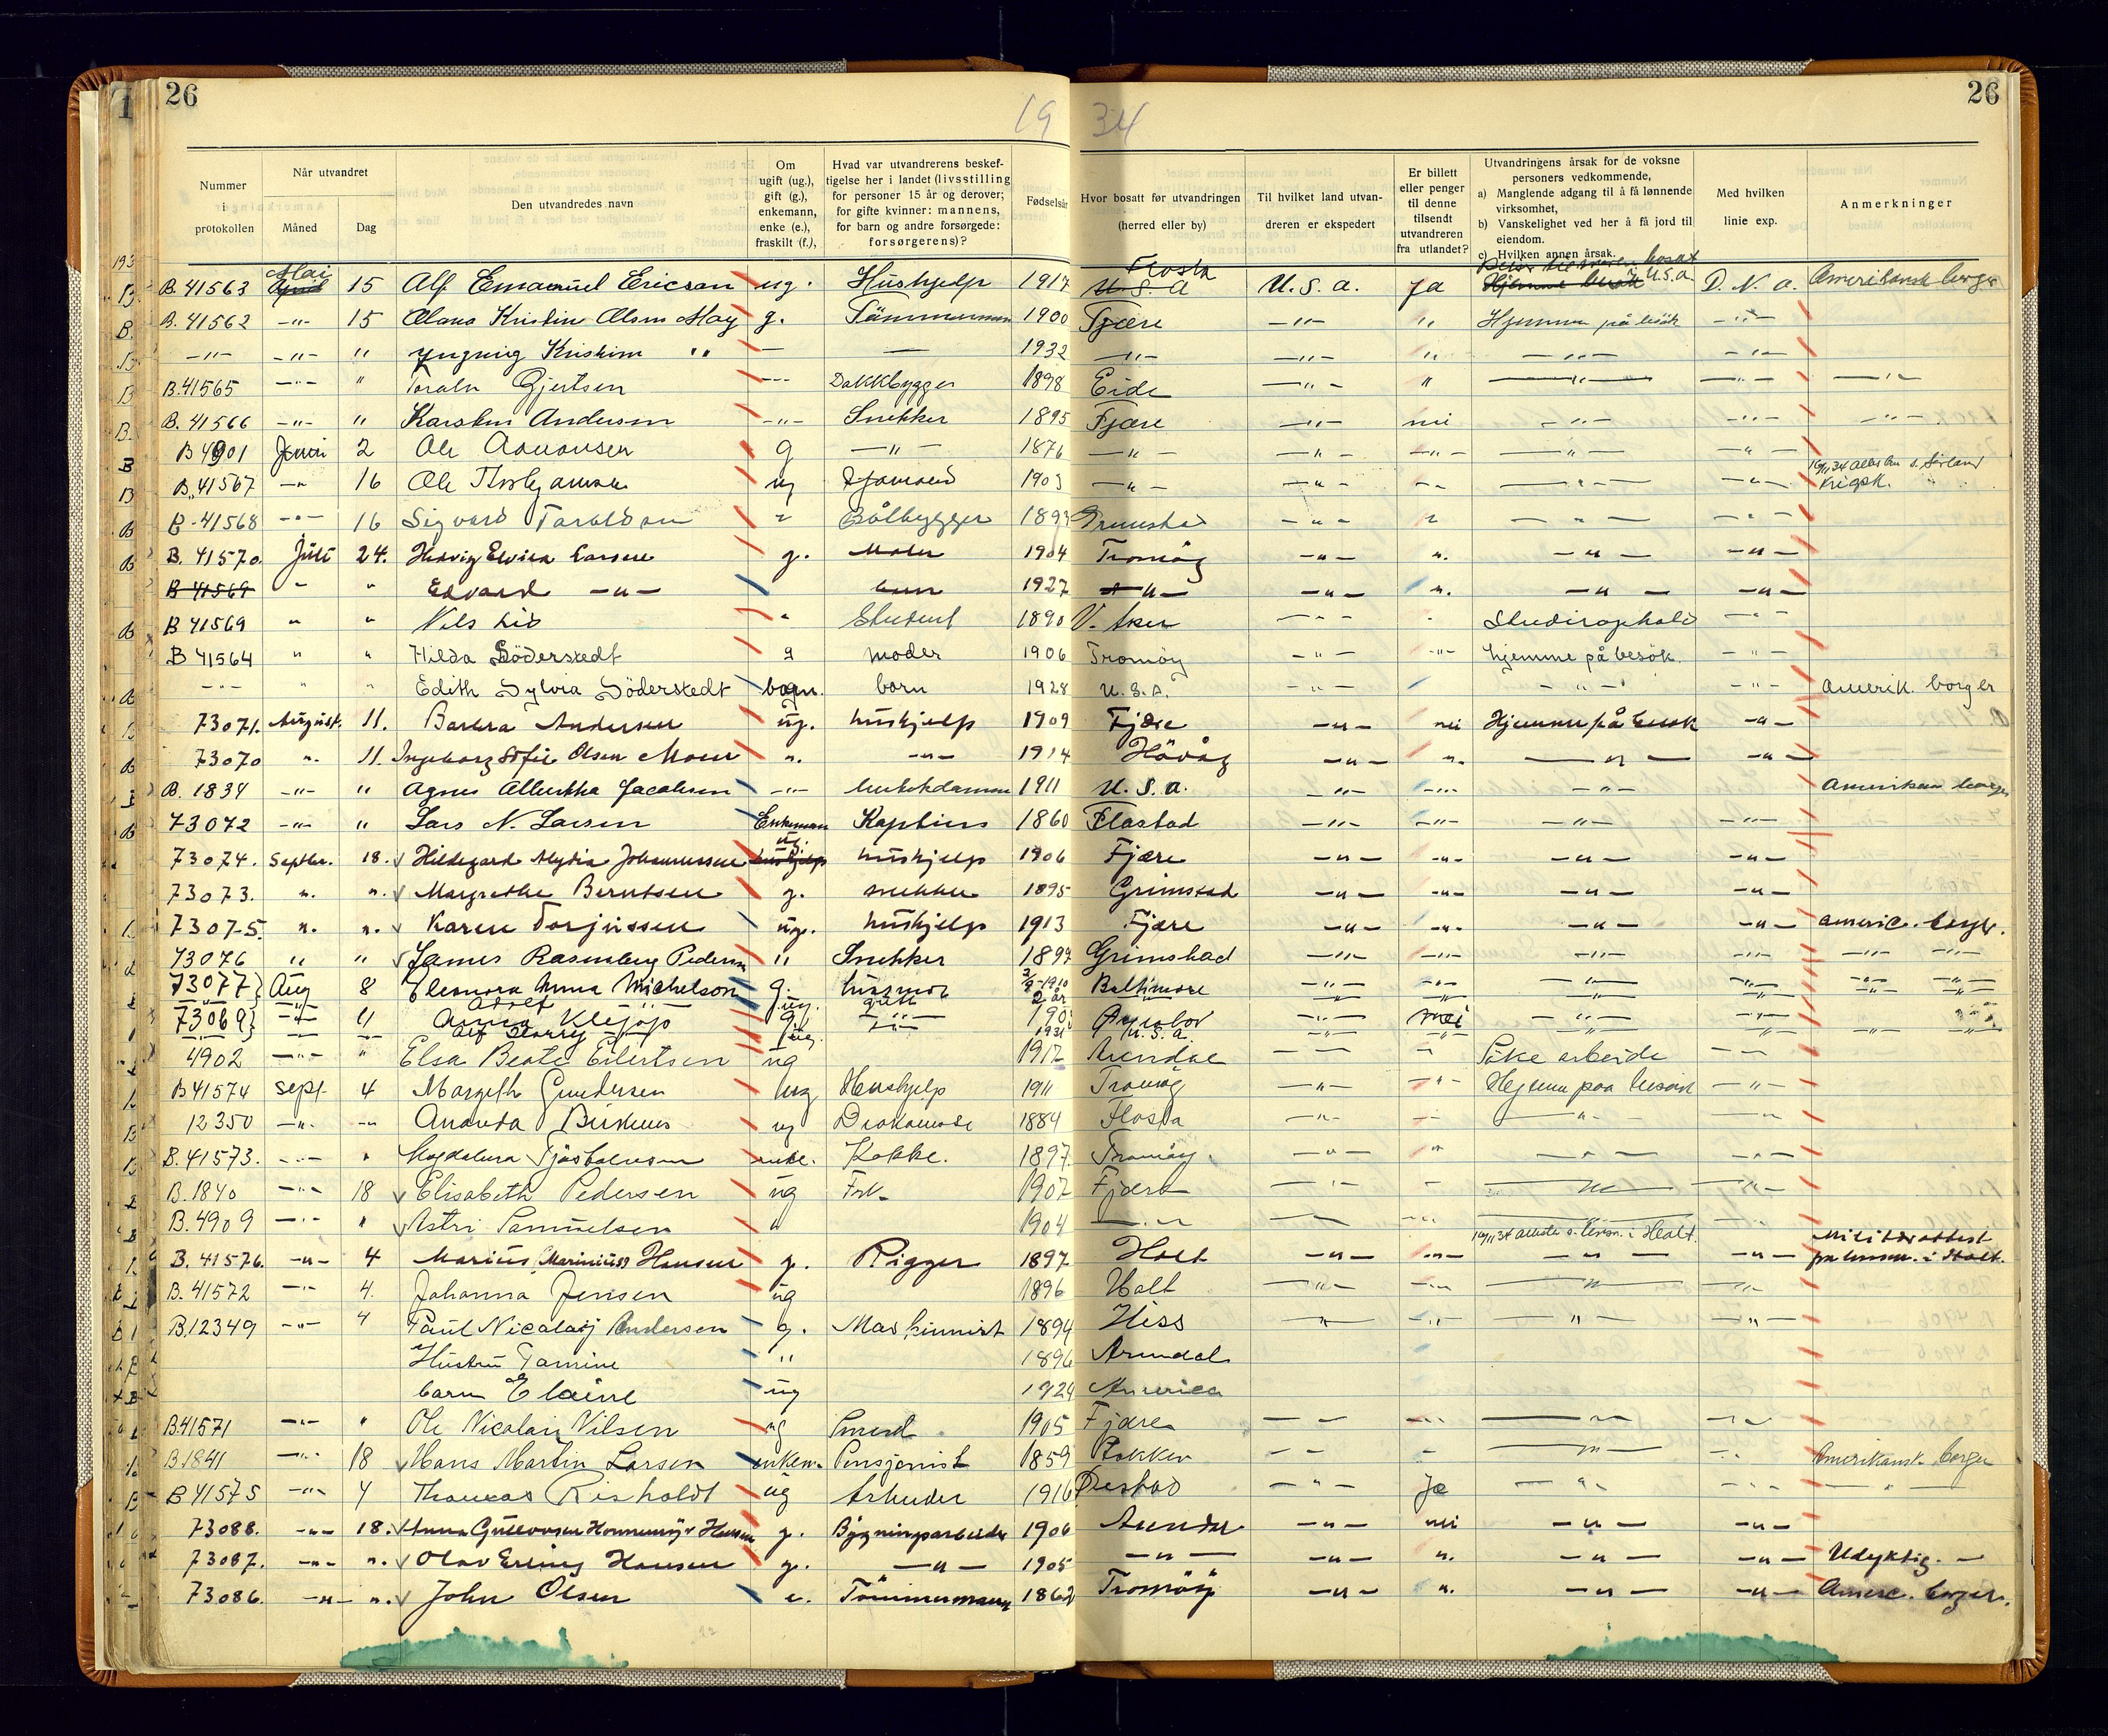 26
19 34
26
Nummer i protokollen
Når utvandret
Måned
Dag
Den utvandredes navn
Om ugift (ug.), gift (g.), enkemann, enke (e.), fraskilt (f.),
Hvad var utvandrerens beskef-tigelse her i landet (livsstilling for personer 15 år og derover; for gifte kvinner: mannens, for barn og andre forsørgede: forsørgerens)?
Fødselsår
Hvor bosatt før utvandringen (herred eller by)
Til hvilket land utvan-dreren er ekspedert
Er billett eller penger til denne tilsendt utvandreren fra utlandet?
Utvandringens årsak for de voksne personers vedkommende,
a) Manglende adgang til å få lønnende virksomhet,
b) Vanskelighet ved her å få jord til eiendom.
c) Hvilken annen årsak.
Med hvilken linie exp.
Anmerkninger
B. 41563 Mai 15 Alf Emanuel Ericson ug. Hushjelp 1917 Flosta U.S.A. ja U.S.A. D.N.A. Amerikansk borger
B. 41562 -"- 15 g. Tømmermann 1900 Fjære -"- " Hjemme på besök -"-
-"- -"- " 1932 -"- -"- " -"- -"-
B. 41565 -"- " Toralv Gjertsen -"- Dekkbygger 1898 Eide -"- " -"- -"- -"-
B. 41566 -"- " Karsten Andersen -"- Snekker 1895 Fjære -"- nei -"- -"- -"-
B 4901 Juni 2 Ole Aanonsen g -"- 1876 -"- -"- -"- -"- -"-
B. 41567 -"- 16 Ole ug 1903 -"- -"- -"- -"- -"-
B-41568 -"- 16 Sigvard Taraldsen " Båtbygger 1893 Grimstad -"- " -"- -"-
B. 41570. Juli 24. Hedvig Elvira Larsen g. Maler 1904 Tromöy -"- n. -"- -"-
B 41569 " " Edvard -"- barn 1927 -"- -"- n. -"- -"-
B 41569 " " Nils Lid " Student 1890 V. Aker -"- " Studieophold -"-
B 41564 " " Hilda Söderstedt g moder 1906 Tromöy -"- -"- hjemme på besök. -"-
-"- " " Edith Sylvia Söderstedt barn 1928 U.S.A. -"- -"- -"- Amerik. borger
73071. August. 11. Barbra Andersen ug. hushjelp 1909 Fjære -"- nei Hjemme på besök -"-
73070 ". 11. Ingeborg Sofie Olsen Moen ". -"- 1914 Hövåg -"- ". -"- -"-
B. 1834 -"- " Agnes Jacobsen -"- 1911 U.S.A. -"- -"- -"-
73072 -"- " Lars N. Larsen Enkemann Kaptein 1860 Flostad -"- -"- -"- -"-
73074. Septbr. 18. Hildegard Alydia Johannessen ug. hushjelp 1906 Fjære -"- -"- -"- -"-
73073. ". ". Margrethe Berntsen g. snekker 1895 Grimstad -"- -"- -"- -"-
73075. ". ". Karen Torjussen ug. hushjelp 1913 Fjære -"- -"- -"- -"- americ. borger.
73076 " " James Rasmberg Pedersen " Snekker 1897 Grimstad -"- -"- -"- -"- -"-
73077 Aug 8 Eleonora Anna Michelson g. husmor 1910 Baltimore -"- -"- -"- -"- -"-
-"- -"- Adolf ug. gutt 2 år
73069 -"- " Anna g -"- -"- nei -"- -"-
Alf Harry ug. 1931 U.S.A.
4902 -"- " Elsa Beate Eilertsen ug 1912 Arendal -"- -"- Söke arbeide -"-
B41574 Sept. 4 Margith Gundersen ug Hushjelp 1911 Tromöy -"- -"- Hjemme paa besök -"-
12350 -"- -"- Amanda ug 1884 Flosta -"- -"- -"-
B. 41573. -"- " Magdalena enke. Kokke. 1897. Tromöy. -"- -"- -"- -"-
B. 1840 -"- 18 Elisabeth Pedersen ug Frk. 1907 Fjære -"- -"- -"- -"-
B. 4909 -"- " Astri Samuelsen " 1904 -"- -"- -"- -"-
B. 41576. -"- 4 Marius (Marinius) Hansen g. Rigger 1897 Holt -"- -"- -"- -"- Militærattest på lensm. i Holt.
B. 41572 -"- 4. Johanna Jensen ug 1896 Holt -"- -"- -"- -"-
B. 12349 -"- 4 Paul Nicolai Andersen g. Maskinist 1894 Hiss -"- -"- -"- -"-
Hustru Tamine " 1896 Arendal
barn Elaine ug 1924 America
B41571 -"- " Ole Nicolai Nilsen ug Smed 1905 Fjære -"- -"- -"- -"-
B.1841 -"- 18 Hans Martin Larsen enkem. Pensjonist 1859 Stokken -"- -"- -"- -"- Amerikansk borger
B 41575 -"- 4 Thomas Risholdt ug Arbeider 1916 Øiestad -"- Ja -"- -"- -"-
73088. -"- 18. Anna Hansen g. Bygningsarbeider 1906 Arendal -"- nei -"- -"-
73087. -"- ". Olav Erling Hansen g. -"- 1905 -"- -"- ". -"- -"- Udyktig. -
73086. -"- ". John Olsen e. Tömmermann 1862 Tromöy -"- ". -"- -"- Americ. borger.